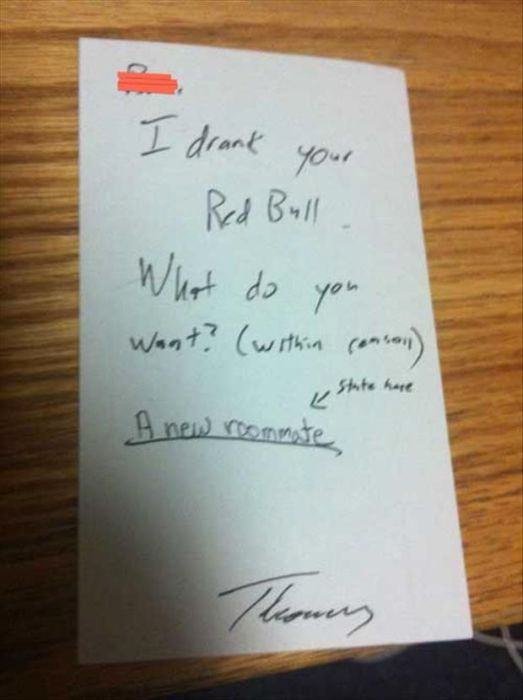 I drank your
Red Bull.
What do you
want? (within reason)
state here
A new roommate
Thomas